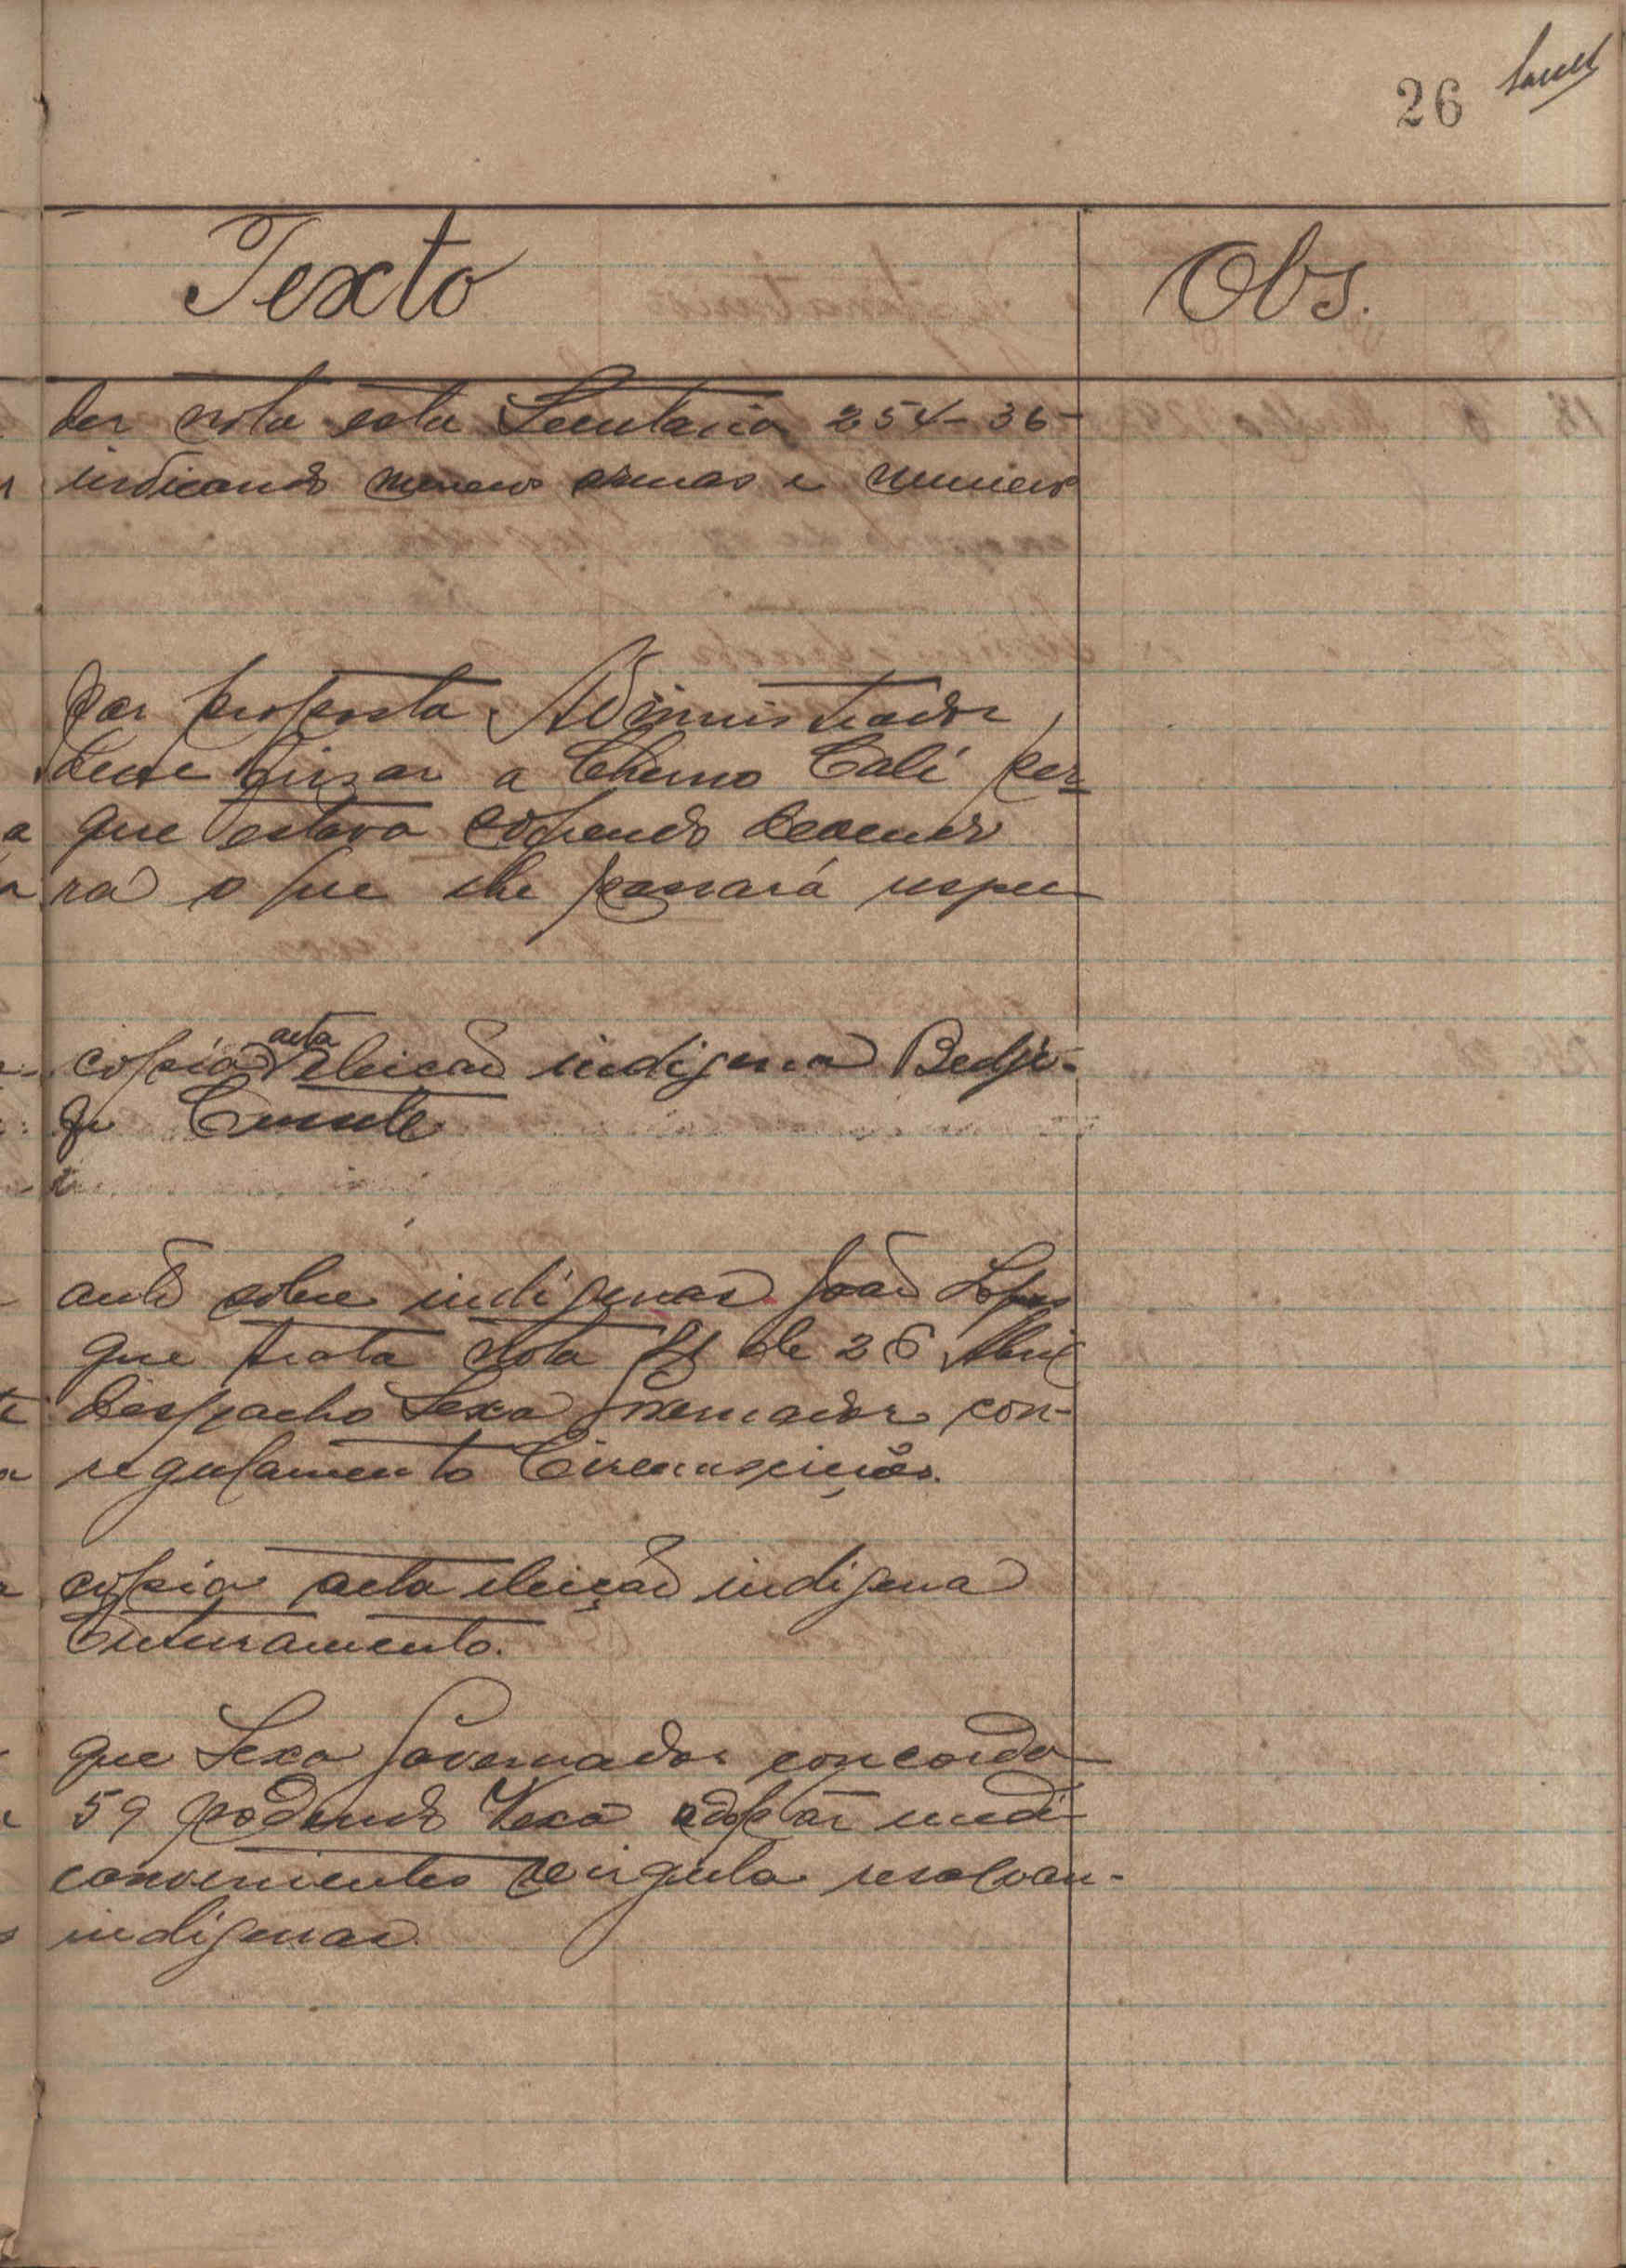 26
Texto Obs.
der nota esta Secretaria 254-36-
indicando numero armas e numero
por proposta Administrador,
deve avisar a Cherno Calí por-
que estava
rá o que lhe passará
copia acta eleicão indigena
de
auto sobre indigenas João Lopes
que trata nota 71 de 26 Abril
despacho Sexa Governador con-
regulamento Circunscrições.
copia acta eleição indigena
Enteramento.
que Sexa Governador concorda
59 podendo Vexa adoptar medi-
convenientes resolvam-
indigenas